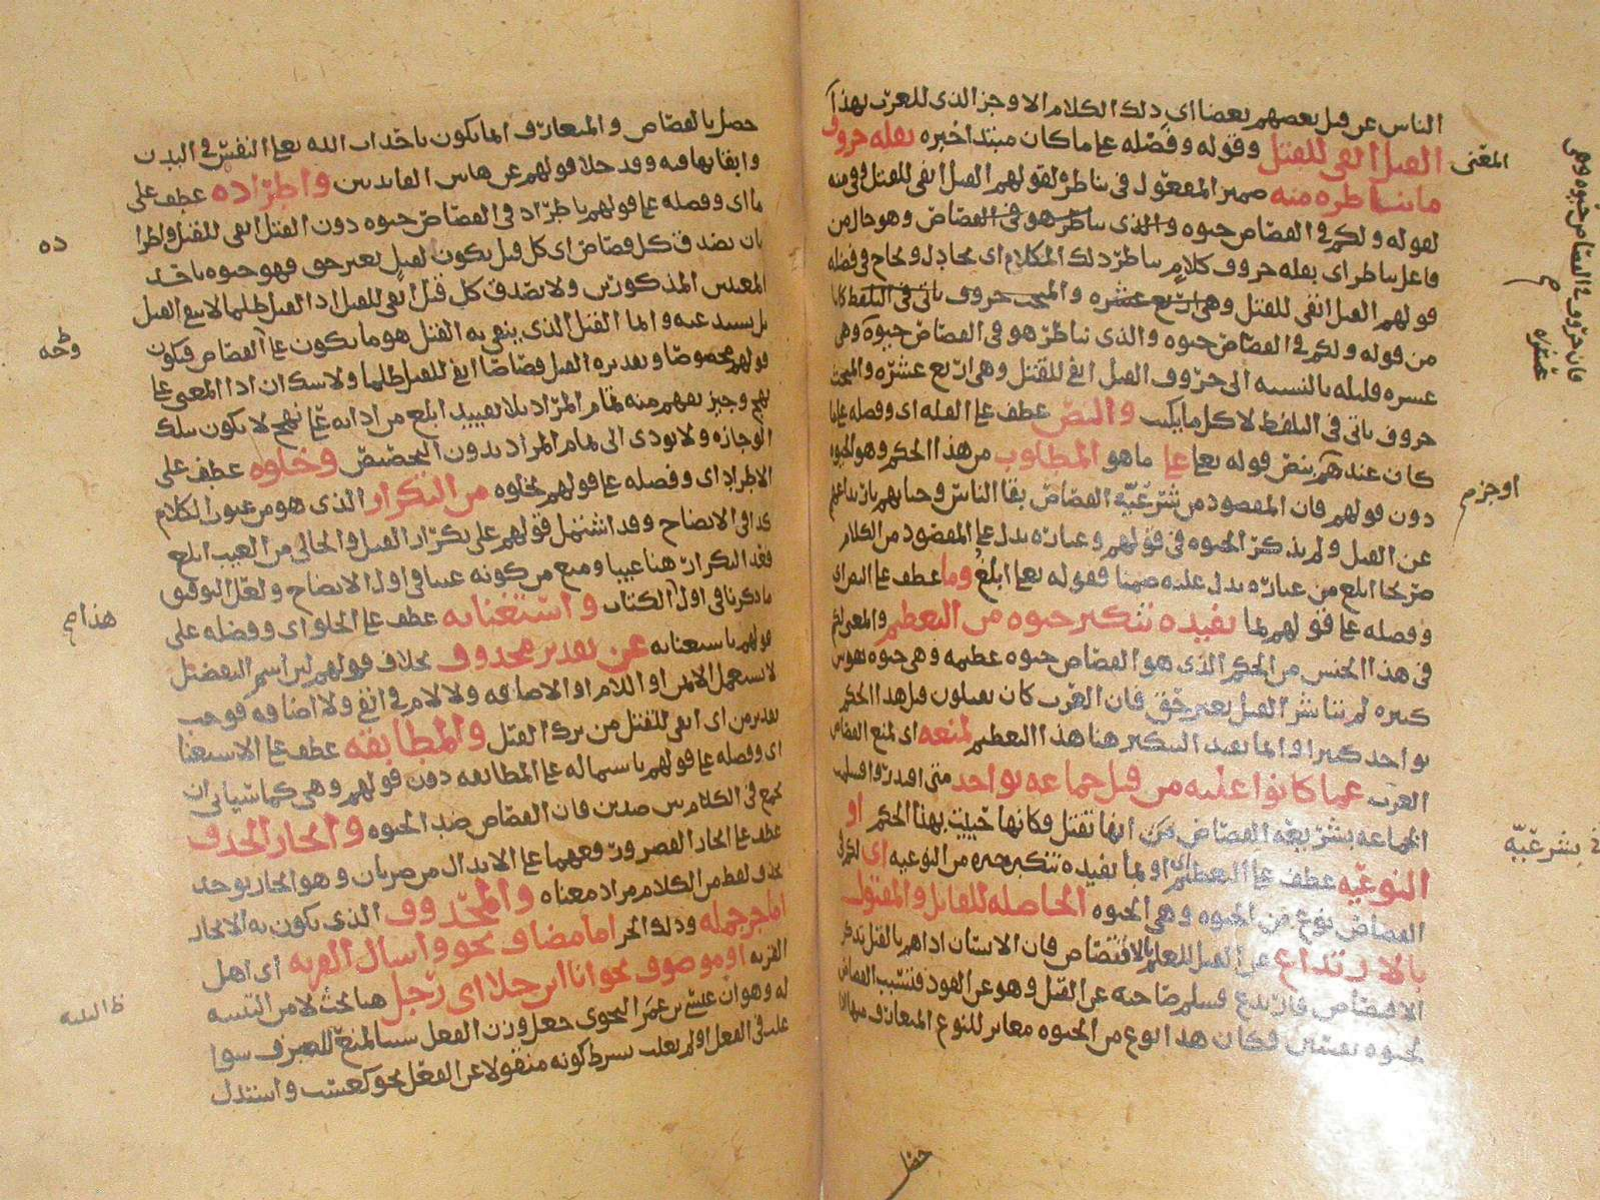 الناس عن قتل بعضهم بعضا اي ذلك الكلام الاوجز الذي للعرب بهذا
المعنى القتل انفى للقتل وقوله وفضله على ما كان مبتدا خبره بقلة حروف
ما يناظره منه ضمير المفعول في يناظر لقولهم القتل انفى للقتل وفي منه
لقوله ولكم في القصاص حيوة والذي يناظر هو في القصاص وهو حال من
فاعل يناظر اي بقلة حروف كلام يناظر ذلك الكلام اي يحاذيه في فضله
قولهم القتل انفى للقتل وهي اربع عشره
من قوله ولكم في القصاص حيوة والذي يناظر هو في القصاص حيوة وهي
عشره قليله بالنسبه الى حروف القتل انفى للقتل وهي اربع عشره
حروف ياتي في التلفظ لا كل ما يكتب والنص عطف على القله اي وفضله على ما
كان عندهم بنص قوله تعالى على المطلوب ما هو من هذا الحكم وهو الحيوة
دون قولهم فان المقصود من شرعية القصاص بقا الناس وحياتهم
عن القتل ولم يذكر الحيوة في قولهم وعباره تدل على المقصود من الكلام
صريحا ابلغ من عباره تدل عليه ضمنا فقوله تعالى ابلغ وما عطف على
وفضله على قولهم بما يفيده تنكير حيوة من التعظيم والمعنى
في هذا الجنس من الحكم الذي هو القصاص حيوة عظيمه وهي حيوة نفوس
كثيره لم يتناشر القتل بغير حق فان العرب كان يقتلون قبل هذا الحكم
بواحد كثيرا وانما يفيد التنكير هنا هذا التعظيم لمنعه اي لمنع القصاص
العرب عما كانوا عليه من قتل جماعه بواحد متى اقتدروا
الجماعه بشريعه القصاص انها تقتل فكانها حييت بهذا الحكم او
النوعيه عطف على التعظيم او بما يفيده تنكير حيوة من النوعيه اي لكم في
القصاص نوع من الحيوة وهي الحيوة الحاصله للقاتل والمقتول
بالارتداع عن القتل للعلم بالاقتصاص فان الانسان اذا هم بالقتل تذكر
الاقتصاص فارتدع فسلم صاحبه عن القتل وهو عن القود فتسبب القصاص
لحيوة نفسين فكان هذا نوع من الحيوة مغاير للنوع المتعارف
فان حروف في القصاص حيوة وهي
عشره
اوجز م
بشرعيّة
حصل بالقصاص والمتعارف انما يكون باحداث الله تعالى النفس في البدن
وابقائها فيه وقد خلا قولهم عن هاتين الفائدتين واطراده عطف على
ما اي وفضله على قولهم باطراد في القصاص حيوة دون القتل انفى للقتل
بان يصدق كل قصاص اي كل قتل يكون لقتل بغير حق فهو حيوة باحد
المعنيين المذكورين ولا يصدق كل قتل انفى للقتل اذ القتل ظلما لا ينفي القتل
بل يستدعيه وانما القتل الذي ينفي به القتل هو ما يكون على القصاص فيكون
قولهم مخصوصا وتقديره القتل قصاصا انفى للقتل ظلما ولا شك ان اداء المعنى على
نهج وجيز يفهم منه تمام المراد بلا تقييد ابلغ من ادائه على نهج لا يكون بتلك
الوجازه ولا يودي الى تمام المراد بدون التخصيص وخلوه عطف على
الاطراد اي وفضله على قولهم بخلوه من التكرار الذي هو من عيوب الكلام
كذا في الايضاح وقد اشتمل قولهم على تكرار القتل والخالي من العيب ابلغ
فعد التكرار هنا عيبا ومنع من كونه عيبا في اول الايضاح ولعل التوفيق
ما ذكرنا في اول الكتاب واستغنائه عطف على الخلو اي وفضله على
قولهم باستغنائه عن تقدير محذوف بخلاف قولهم لان اسم التفضيل
لا يستعمل الا بمن او اللام او الاضافه ولا لام في انفى ولا اضافه فوجب
تقدير من اي انفى للقتل من ترك القتل والمطابقه عطف على الاستغنا
اي وفضله على قولهم باشتماله على المطابقه دون قولهم وهي كما سياتي ان
يجمع في الكلام بين ضدين فان القصاص ضد الحيوة وايجاز الحذف
عطف على ايجاز القصر ورفعهما على الابدال من ضربان وهو ايجاز يوجد
بحذف لفظ من الكلام مراد معناه والمحذوف الذي يكون به الايجاز
اما جزء جمله وذلك الجزء اما مضاف نحو واسال القريه اي اهل
القريه او موصوف نحو انا ابن جلا اي رجل هنا بحث لا من التنبيه
له وهو ان عيسى بن عمر النحوي جعل وزن الفعل سببا لمنع الصرف سوا
غلب في الفعل او لم يغلب بشرط كونه منقولا عن الفعل نحو كعسب واستدل
هذا م